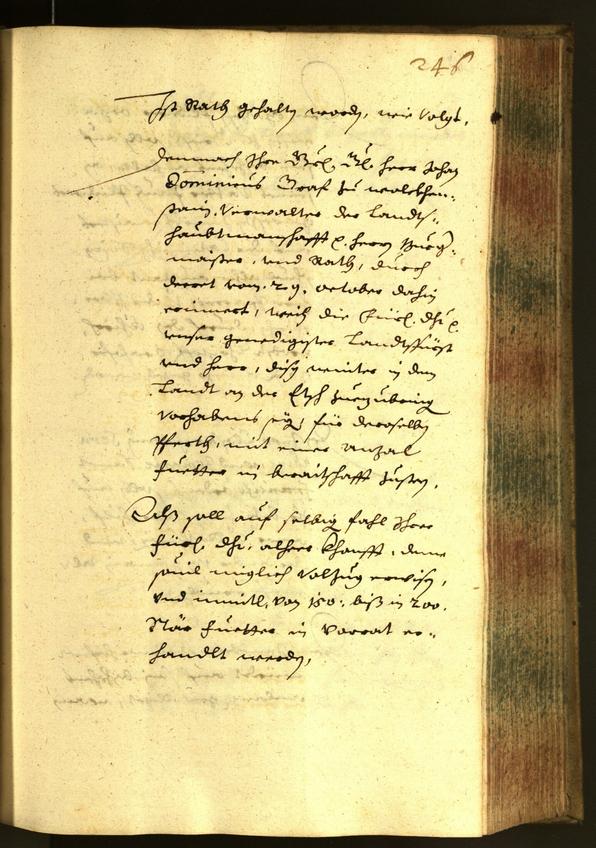 246
Ist Rath gehalten worden, wie volgt.
Demnach Ihre Herr Johan
Dominicus Graf zu wolckhen-
stain, Verwalter der Landts-
haubtmanschafft herrn Burg-
maister, und Rath, durch
decret vom 29. october dahin
erinnert, weil die Fürl. Dhl.
unser genedigister Landtsfürst
und herr, disen winter in dem
Landt an der Etsch zuezubringen
vorhabens seye, für deroselben
Pferth, mit einer anzal
fuetter in beraitschafft zusten.
Alß soll auf selbig fahl Ihrer
Fürl. Dhl. alher khonfft, deme
souil miglich volzug erwisen,
und inmitl. von 150. biß in 200.
Stär fuetter in vorrat er-
handlt werden.